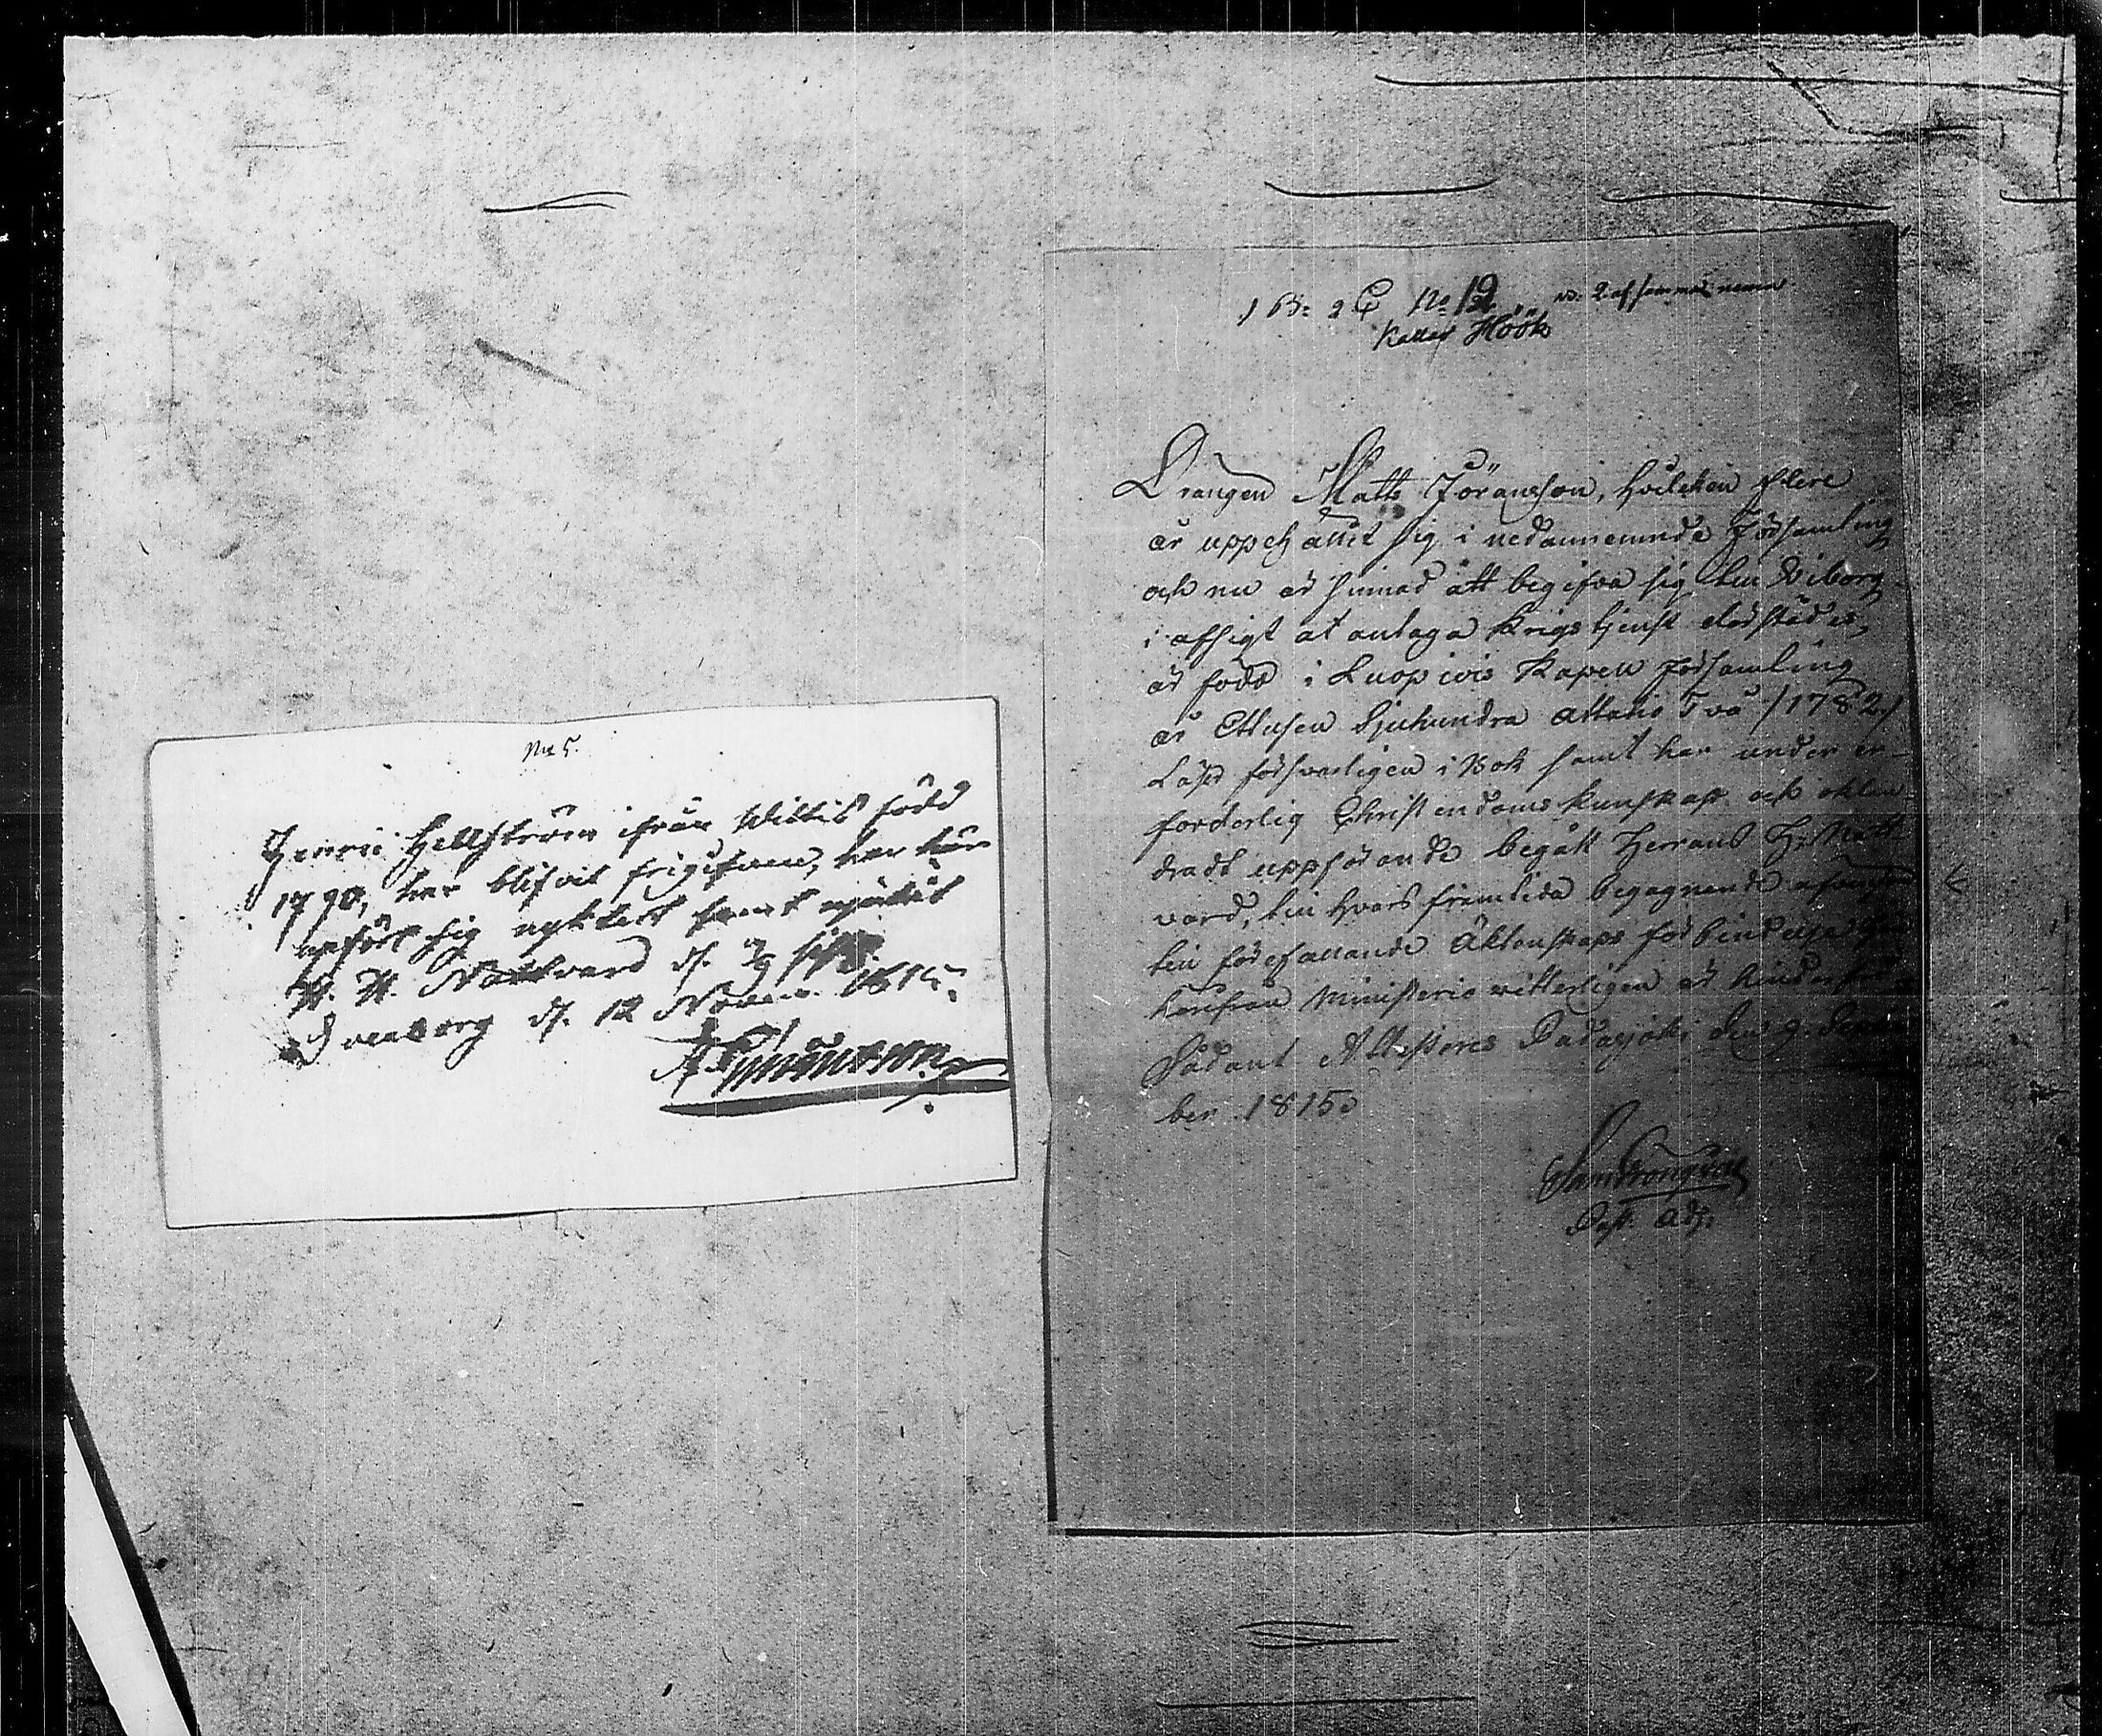 No 5.
Henric Hellström ifrån Wittis född
1790, har blifvit frigifven, har här
upfört sig nyktert samt njutit
H. H. Nattvard d.
d. 12 Novem. 1815.
1 B: 2 C No 12 2 af samma namn
Kallas Höök
Drängen Matts Jöransson, hvilcken flere
år uppehållit sig i nedannemnde Församling
och nu är sinnad att begifva sig till Viborg
i afsigt at antaga Krigstjenst därstädes,
är född i Luopiois Kapell Församling
år Ettusen Sjuhundra Attatio Två /1782./
Läser försvarligen i Bok samt har under er-
forderlig Christendoms kunskap och oklan-
dradt uppförande begått Herrans H: Natt
vard, till hvars framtida begagnande
till förefallande Äktenskaps förbindelse
härifrån Ministerio witterligen är hinderfri
Sådant Attesteras Padasjoki den 9. Decem
ber 1815.
Past. Adj.